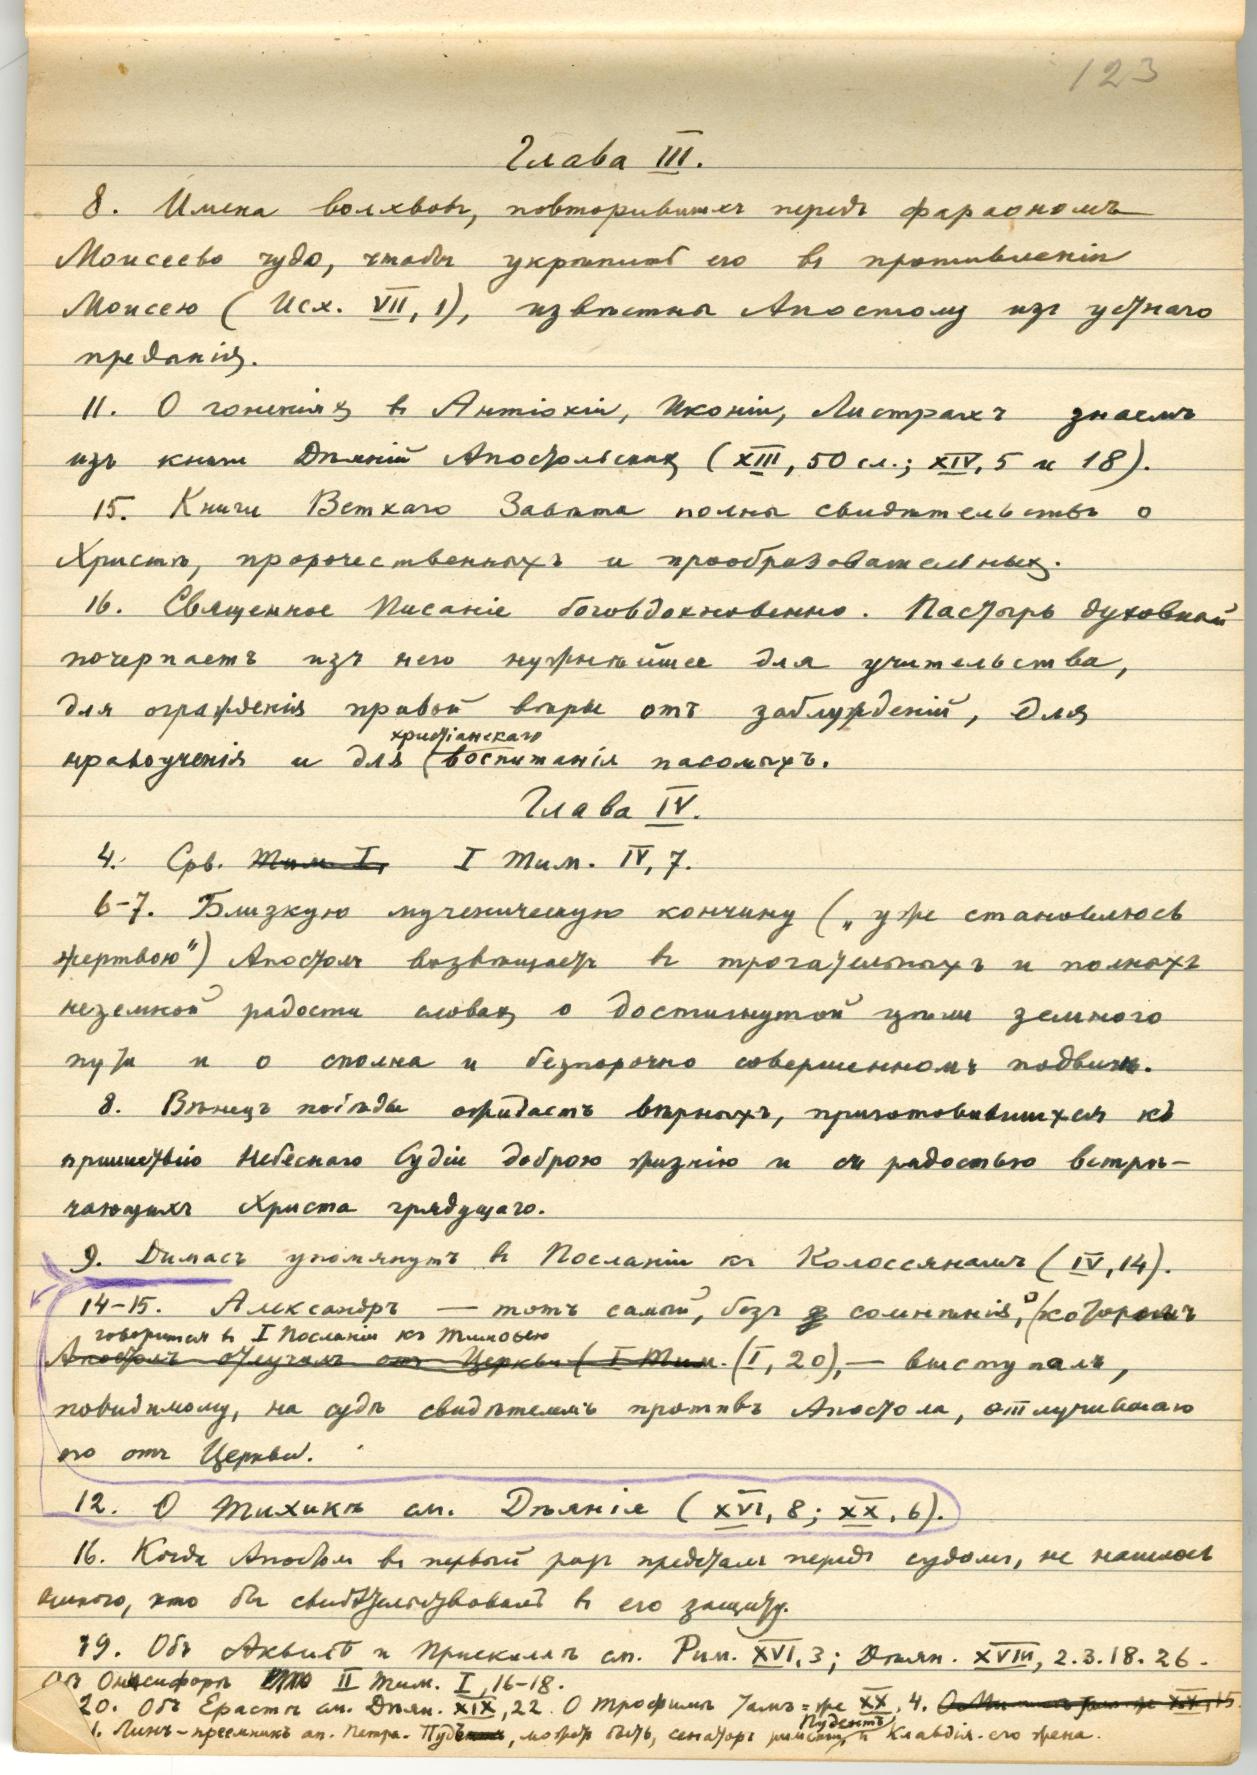 123
Глава III.
8. Имена волхвовъ, повторившихъ передъ фараономъ
Моисеево чудо, чтобы укрѣпить его въ противленіи
Моисею (Исх. VII, 1), извѣстны Апостолу изъ устнаго
преданія.
11. О гоненіяхъ въ Антіохіи, Иконіи, Листрахъ знаемъ
изъ книги Дѣяній Апостольскихъ (XIII, 50 сл.; XIV, 5 и 18).
15. Книги Ветхаго Завѣта полны свидѣтельствъ о
Христѣ, пророчественныхъ и прообразовательныхъ.
16. Священное Писаніе боговдохновенно. Пастырь духовный
почерпаетъ изъ него нужнѣйшее для учительства,
для огражденія правой вѣры отъ заблужденій, для
христіанскаго
нравоученія и для воспитанія пасомыхъ.
Глава IV.
4. Срв. Тим. I, I Тим. IV, 7.
6-7. Близкую мученическую кончину („уже становлюсь
жертвою") Апостолъ возвѣщаетъ въ трогательныхъ и полныхъ
неземной радости словахъ о достигнутой цѣли земного
пути и о сполна и безпорочно совершенномъ подвигѣ.
8. Вѣнецъ побѣды ожидаетъ вѣрныхъ, приготовившихся къ
пришествію Небеснаго Судіи доброю жизнію и съ радостью встрѣ-
чающихъ Христа грядущаго.
9. Димасъ упомянутъ въ Посланіи къ Колоссянамъ (IV, 14).
14-15. Александръ — тотъ самый, безъ сомнѣнія, о которомъ
говорится въ I Посланіи къ Тимоѳею
Апостолъ отлучилъ отъ Церкви (I Тим. (I, 20), — выступалъ,
повидимому, на судѣ свидѣтелемъ противъ Апостола, отлучившаго
его отъ Церкви.
12. О Тихикѣ см. Дѣянія (XVI, 8; XX, 6).
16. Когда Апостолъ въ первый разъ предсталъ передъ судомъ, не нашлось
никого, кто бы свидѣтельствовалъ въ его защиту.
19. Объ Аквилѣ и Прискиллѣ см. Рим. XVI, 3; Дѣян. XVIII, 2.3.18.26.
Объ Онисифорѣ II Тим. I, 16-18.
20. Объ Ерастѣ см. Дѣян. XIX, 22. О Трофимѣ тамъ-же XX, 4.
Пудентъ
1. Линъ - преемникъ ап. Петра. может быть, сенаторъ римскій, и Клавдія - его жена.